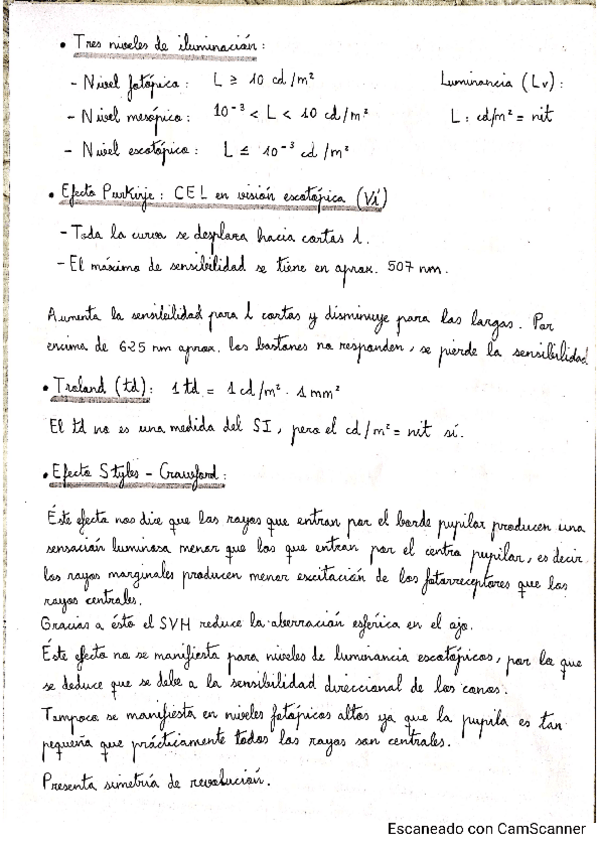 • Tres niveles de iluminación:
- Nivel fotópico: L ≥ 10 cd/m² Luminancia (Lv):
- Nivel mesópico: 10⁻³ < L < 10 cd/m² L: cd/m² = nit
- Nivel escotópico: L ≤ 10⁻³ cd/m²
• Efecto Purkinje: CEL en visión escotópica (V'λ)
- Toda la curva se desplaza hacia cortas λ.
- El máximo de sensibilidad se tiene en aprox. 507 nm.
Aumenta la sensibilidad para λ cortas y disminuye para las largas. Por
encima de 625 nm aprox. los bastones no responden, se pierde la sensibilidad
• Troland (td): 1 td = 1 cd/m² · 1 mm²
El td no es una medida del SI, pero el cd/m² = nit sí.
• Efecto Styles - Crawford:
Éste efecto nos dice que los rayos que entran por el borde pupilar producen una
sensación luminosa menor que los que entran por el centro pupilar, es decir
los rayos marginales producen menor excitación de los fotorreceptores que los
rayos centrales.
Gracias a ésto el SVH reduce la aberración esférica en el ojo.
Éste efecto no se manifiesta para niveles de luminancia escotópicos, por lo que
se deduce que se debe a la sensibilidad direccional de los conos.
Tampoco se manifiesta en niveles fotópicos altos ya que la pupila es tan
pequeña que prácticamente todos los rayos son centrales.
Presenta simetría de revolución.
Escaneado con CamScanner